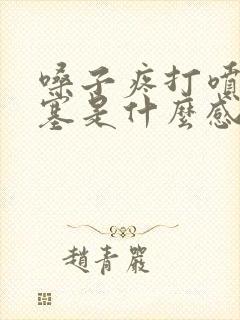 嗓子疼打噴
塞是什麼感
趙青嚴